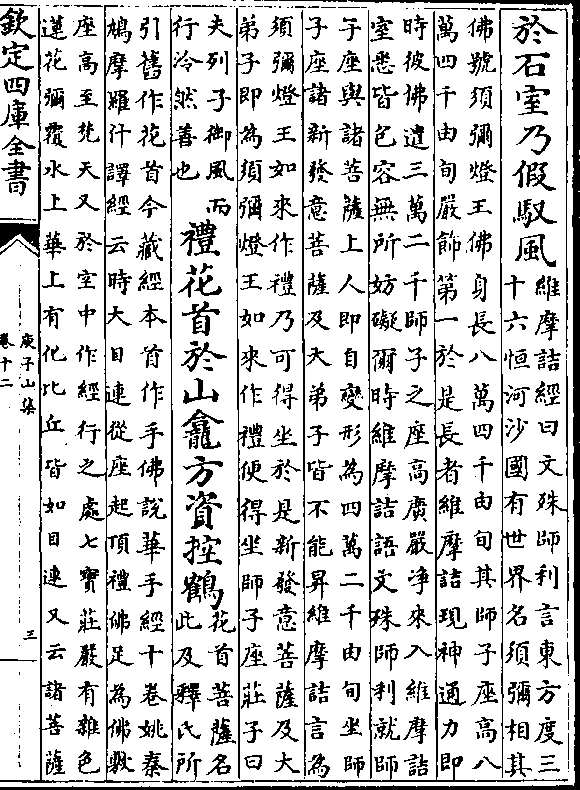 於石室乃假馭風維摩詰經曰文殊師利言東方度三
十六恒河沙國有世界名須彌相其
佛號須彌燈王佛身長八萬四千由旬其師子座高八
萬四千由旬嚴飾第一於是長者維摩詰現神通力即
時彼佛遣三萬二千師子之座高廣嚴淨來入維摩詰
室悉皆包容無所妨礙爾時維摩詰語文殊師利就師
子座與諸菩薩上人即自變形為四萬二千由旬坐師
子座諸新發意菩薩及大弟子皆不能昇維摩詰言為
須彌燈王如來作禮乃可得坐於是新發意菩薩及大
弟子即為須彌燈王如來作禮便得坐師子座莊子曰
夫列子御風而
行冷然善也
禮花首於山龕方資控鶴花首菩薩名
此及釋氏所
引舊作花首今藏經本首作手佛說華手經十卷姚秦
鳩摩羅什譯經云時大目連從座起頂禮佛足為佛敷
座高至梵天又於空中作經行之處七寶莊嚴有雜色
蓮花彌覆水上華上有化比丘皆如目連又云諸菩薩
欽定四庫全書
庾子山集
卷十二
三